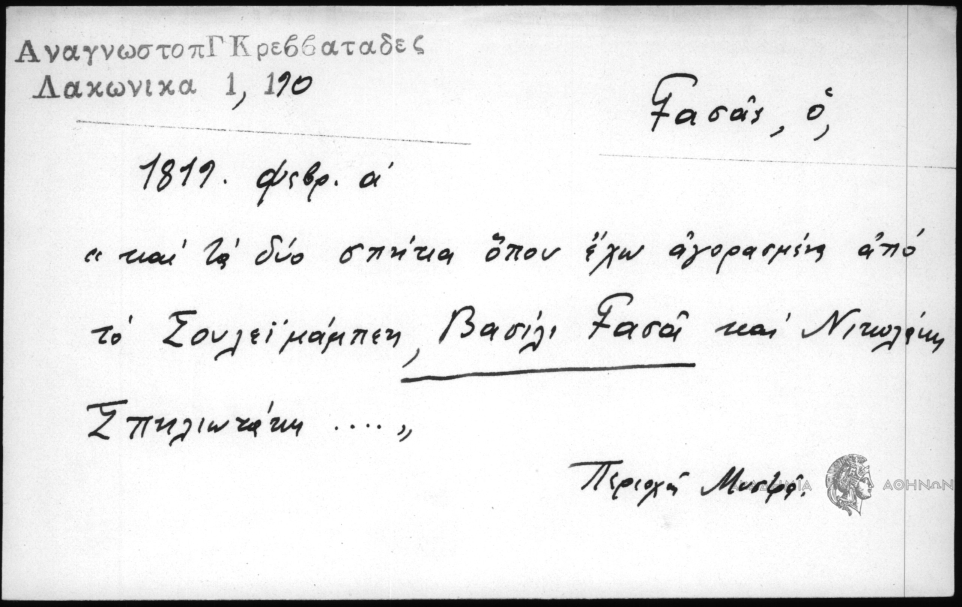 ΑναγνωστοπΓΚρεββαταδες
Λακωνικα 1, 190
Γασᾶς, ὁ,
1819. φεβρ. α΄
« καί τά δύο σπήτια ὅπου ἔχω ἀγορασμένα ἀπό
τό Σουλεϊμάμπεη, Βασίλι Γασᾶ καί Νικολάκη
Σπηλιωτάκη .... »
Περιοχή Μυστρᾶ.
ΑΘΗΝΩΝ